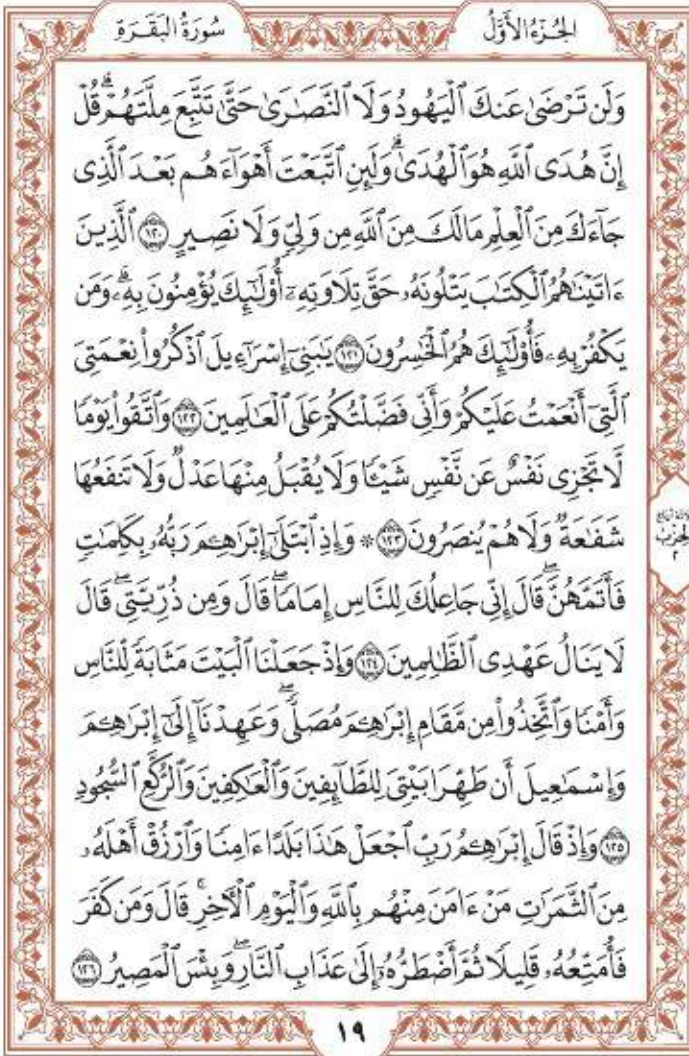 سُورَةُ الْبَقَرَةِ
الجُزْءُ الأَوَّلُ
وَلَن تَرْضَىٰ عَنكَ ٱلْيَهُودُ وَلَا ٱلنَّصَـٰرَىٰ حَتَّىٰ تَتَّبِعَ مِلَّتَهُمْ ۗ قُلْ
إِنَّ هُدَى ٱللَّهِ هُوَ ٱلْهُدَىٰ ۗ وَلَئِنِ ٱتَّبَعْتَ أَهْوَآءَهُم بَعْدَ ٱلَّذِى
جَآءَكَ مِنَ ٱلْعِلْمِ مَا لَكَ مِنَ ٱللَّهِ مِن وَلِىٍّ وَلَا نَصِيرٍ ١٢٠ ٱلَّذِينَ
ءَاتَيْنَـٰهُمُ ٱلْكِتَـٰبَ يَتْلُونَهُۥ حَقَّ تِلَاوَتِهِۦٓ أُو۟لَـٰٓئِكَ يُؤْمِنُونَ بِهِۦ ۗ وَمَن
يَكْفُرْ بِهِۦ فَأُو۟لَـٰٓئِكَ هُمُ ٱلْخَـٰسِرُونَ ١٢١ يَـٰبَنِىٓ إِسْرَٰٓءِيلَ ٱذْكُرُوا۟ نِعْمَتِىَ
ٱلَّتِىٓ أَنْعَمْتُ عَلَيْكُمْ وَأَنِّى فَضَّلْتُكُمْ عَلَى ٱلْعَـٰلَمِينَ ١٢٢ وَٱتَّقُوا۟ يَوْمًا
لَّا تَجْزِى نَفْسٌ عَن نَّفْسٍ شَيْـًٔا وَلَا يُقْبَلُ مِنْهَا عَدْلٌ وَلَا تَنفَعُهَا
شَفَـٰعَةٌ وَلَا هُمْ يُنصَرُونَ ١٢٣ ۞ وَإِذِ ٱبْتَلَىٰٓ إِبْرَٰهِـۧمَ رَبُّهُۥ بِكَلِمَـٰتٍ
الحِزْب
٢
فَأَتَمَّهُنَّ ۖ قَالَ إِنِّى جَاعِلُكَ لِلنَّاسِ إِمَامًا ۖ قَالَ وَمِن ذُرِّيَّتِى ۖ قَالَ
لَا يَنَالُ عَهْدِى ٱلظَّـٰلِمِينَ ١٢٤ وَإِذْ جَعَلْنَا ٱلْبَيْتَ مَثَابَةً لِّلنَّاسِ
وَأَمْنًا وَٱتَّخِذُوا۟ مِن مَّقَامِ إِبْرَٰهِـۧمَ مُصَلًّى ۖ وَعَهِدْنَآ إِلَىٰٓ إِبْرَٰهِـۧمَ
وَإِسْمَـٰعِيلَ أَن طَهِّرَا بَيْتِىَ لِلطَّآئِفِينَ وَٱلْعَـٰكِفِينَ وَٱلرُّكَّعِ ٱلسُّجُودِ
١٢٥ وَإِذْ قَالَ إِبْرَٰهِـۧمُ رَبِّ ٱجْعَلْ هَـٰذَا بَلَدًا ءَامِنًا وَٱرْزُقْ أَهْلَهُۥ
مِنَ ٱلثَّمَرَٰتِ مَنْ ءَامَنَ مِنْهُم بِٱللَّهِ وَٱلْيَوْمِ ٱلْـَٔاخِرِ ۖ قَالَ وَمَن كَفَرَ
فَأُمَتِّعُهُۥ قَلِيلًا ثُمَّ أَضْطَرُّهُۥٓ إِلَىٰ عَذَابِ ٱلنَّارِ ۖ وَبِئْسَ ٱلْمَصِيرُ ١٢٦
١٩